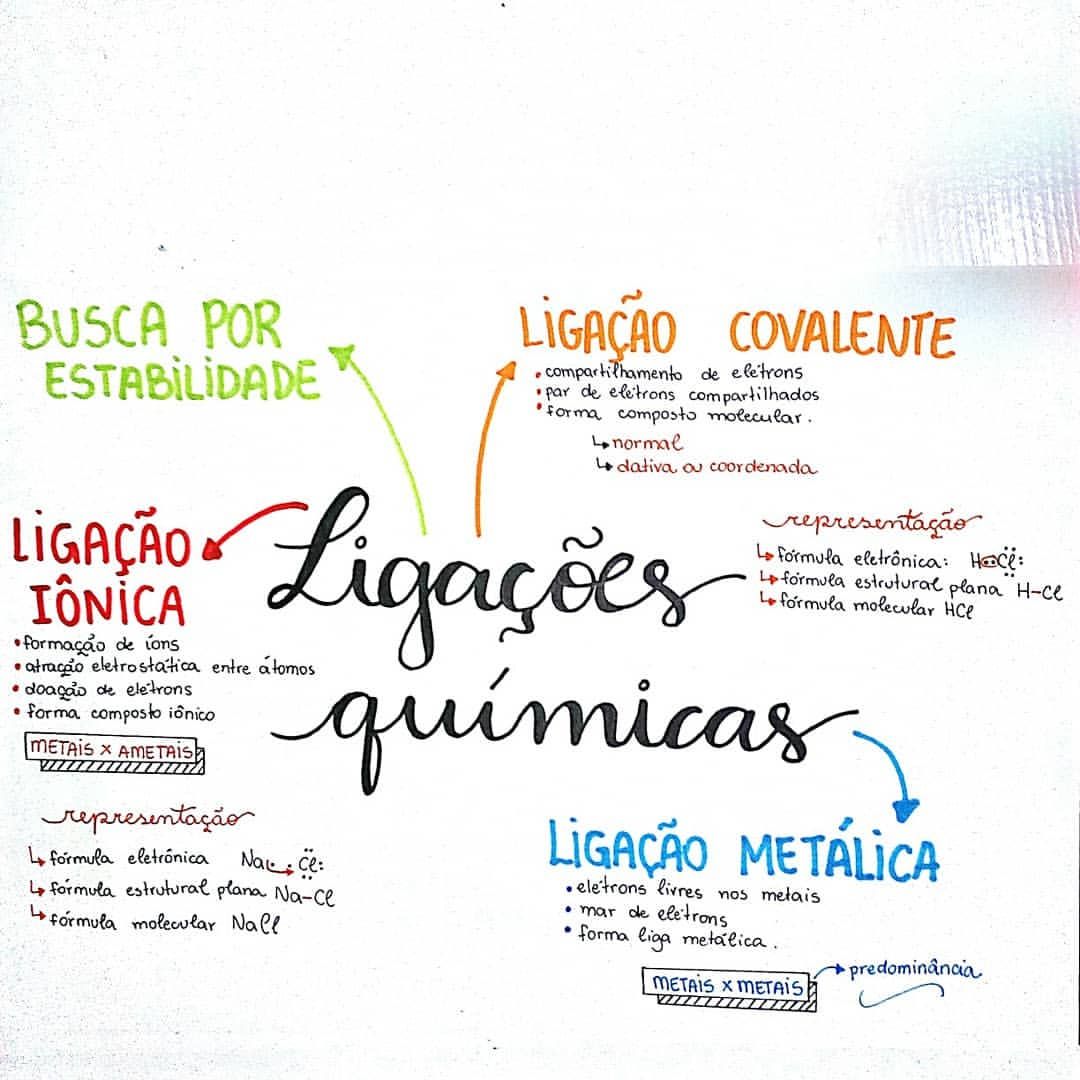 BUSCA POR
ESTABILIDADE
LIGAÇÃO COVALENTE
• compartilhamento de elétrons
• par de elétrons compartilhados
• forma composto molecular.
↳ normal
↳ dativa ou coordenada
representação
↳ fórmula eletrônica: H••Cl:
↳ fórmula estrutural plana H-Cl
↳ fórmula molecular HCl
Ligações
químicas
LIGAÇÃO
IÔNICA
• formação de íons
• atração eletrostática entre átomos
• doação de elétrons
• forma composto iônico
METAIS X AMETAIS
representação
↳ fórmula eletrônica Na. .Cl:
↳ fórmula estrutural plana Na-Cl
↳ fórmula molecular NaCl
LIGAÇÃO METÁLICA
• elétrons livres nos metais
• mar de elétrons
• forma liga metálica.
METAIS X METAIS → predominância